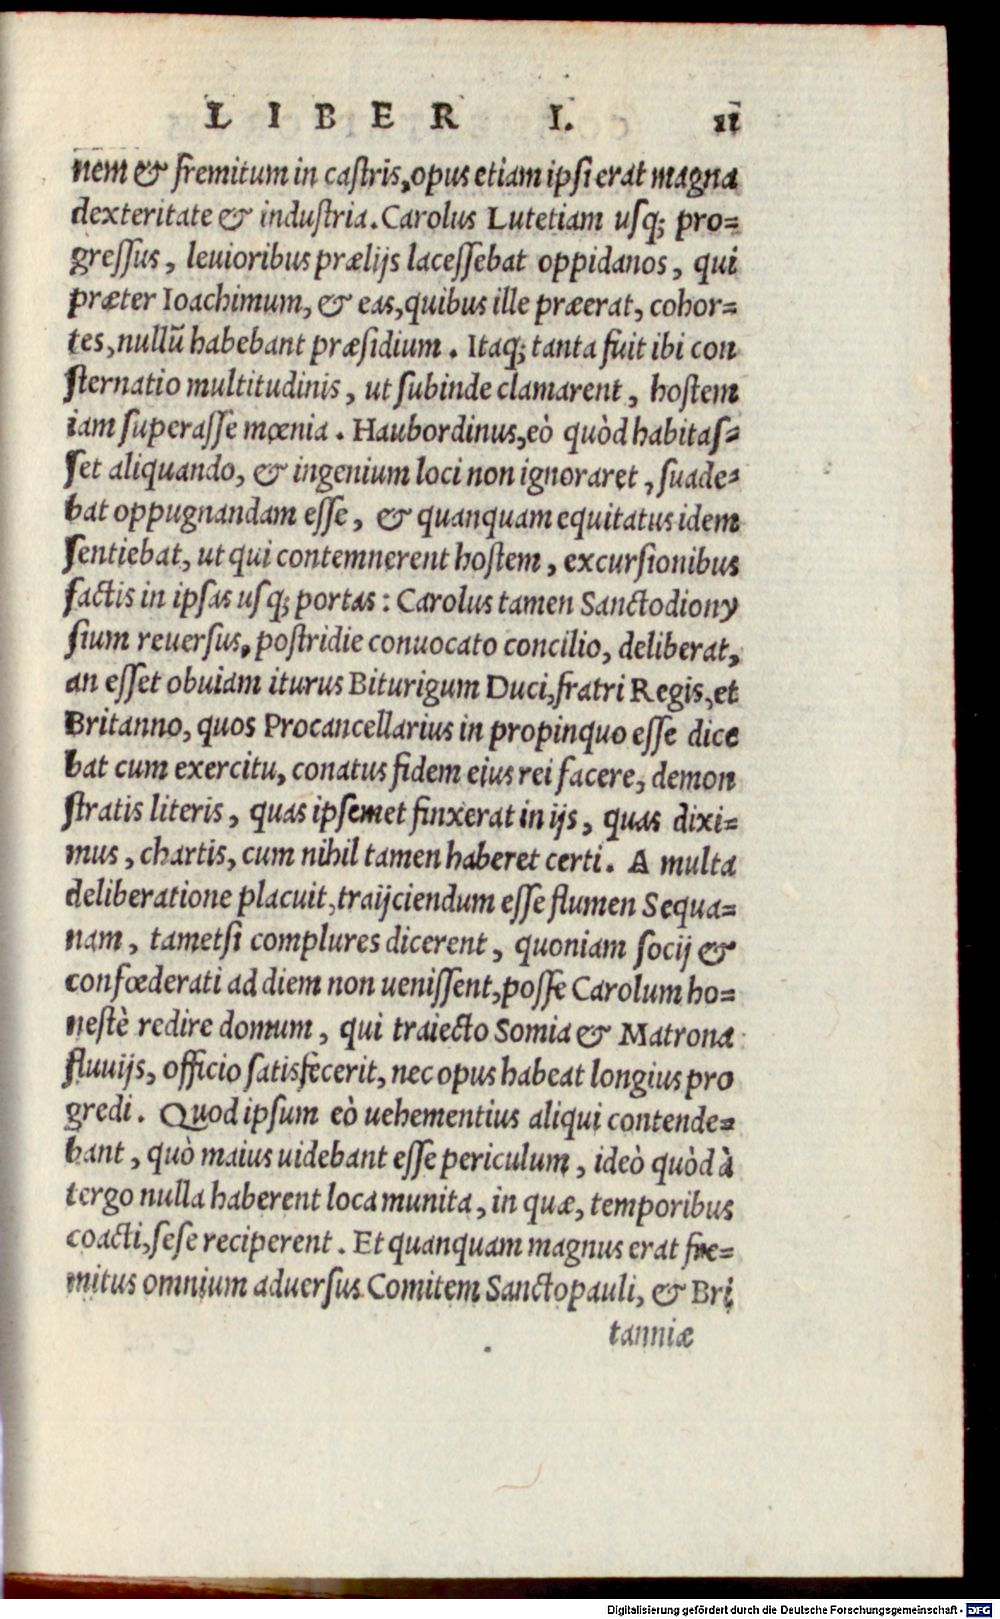 LIBER I. 11
nem & fremitum in castris, opus etiam ipsi erat magna
dexteritate & industria. Carolus Lutetiam usq; pro=
gressus, leuioribus prælijs lacessebat oppidanos, qui
præter Ioachimum, & eas, quibus ille præerat, cohor=
tes, nullũ habebant præsidium. Itaq; tanta fuit ibi con
sternatio multitudinis, ut subinde clamarent, hostem
iam superasse mœnia. Haubordinus, eò quòd habitas=
set aliquando, & ingenium loci non ignoraret, suade=
bat oppugnandam esse, & quanquam equitatus idem
sentiebat, ut qui contemnerent hostem, excursionibus
factis in ipsas usq; portas: Carolus tamen Sanctodiony
sium reuersus, postridie conuocato concilio, deliberat,
an esset obuiam iturus Biturigum Duci, fratri Regis, et
Britanno, quos Procancellarius in propinquo esse dice
bat cum exercitu, conatus fidem eius rei facere, demon
stratis literis, quas ipsemet finxerat in ijs, quas dixi=
mus, chartis, cum nihil tamen haberet certi. A multa
deliberatione placuit, traijciendum esse flumen Sequa=
nam, tametsi complures dicerent, quoniam socij &
confœderati ad diem non uenissent, posse Carolum ho=
nestè redire domum, qui traiecto Somia & Matrona
fluuijs, officio satisfecerit, nec opus habeat longius pro
gredi. Quod ipsum eò uehementius aliqui contende=
bant, quò maius uidebant esse periculum, ideò quòd à
tergo nulla haberent loca munita, in quæ, temporibus
coacti, sese reciperent. Et quanquam magnus erat fre=
mitus omnium aduersus Comitem Sanctopauli, & Bri
tanniæ
Digitalisierung gefördert durch die Deutsche Forschungsgemeinschaft - DFG